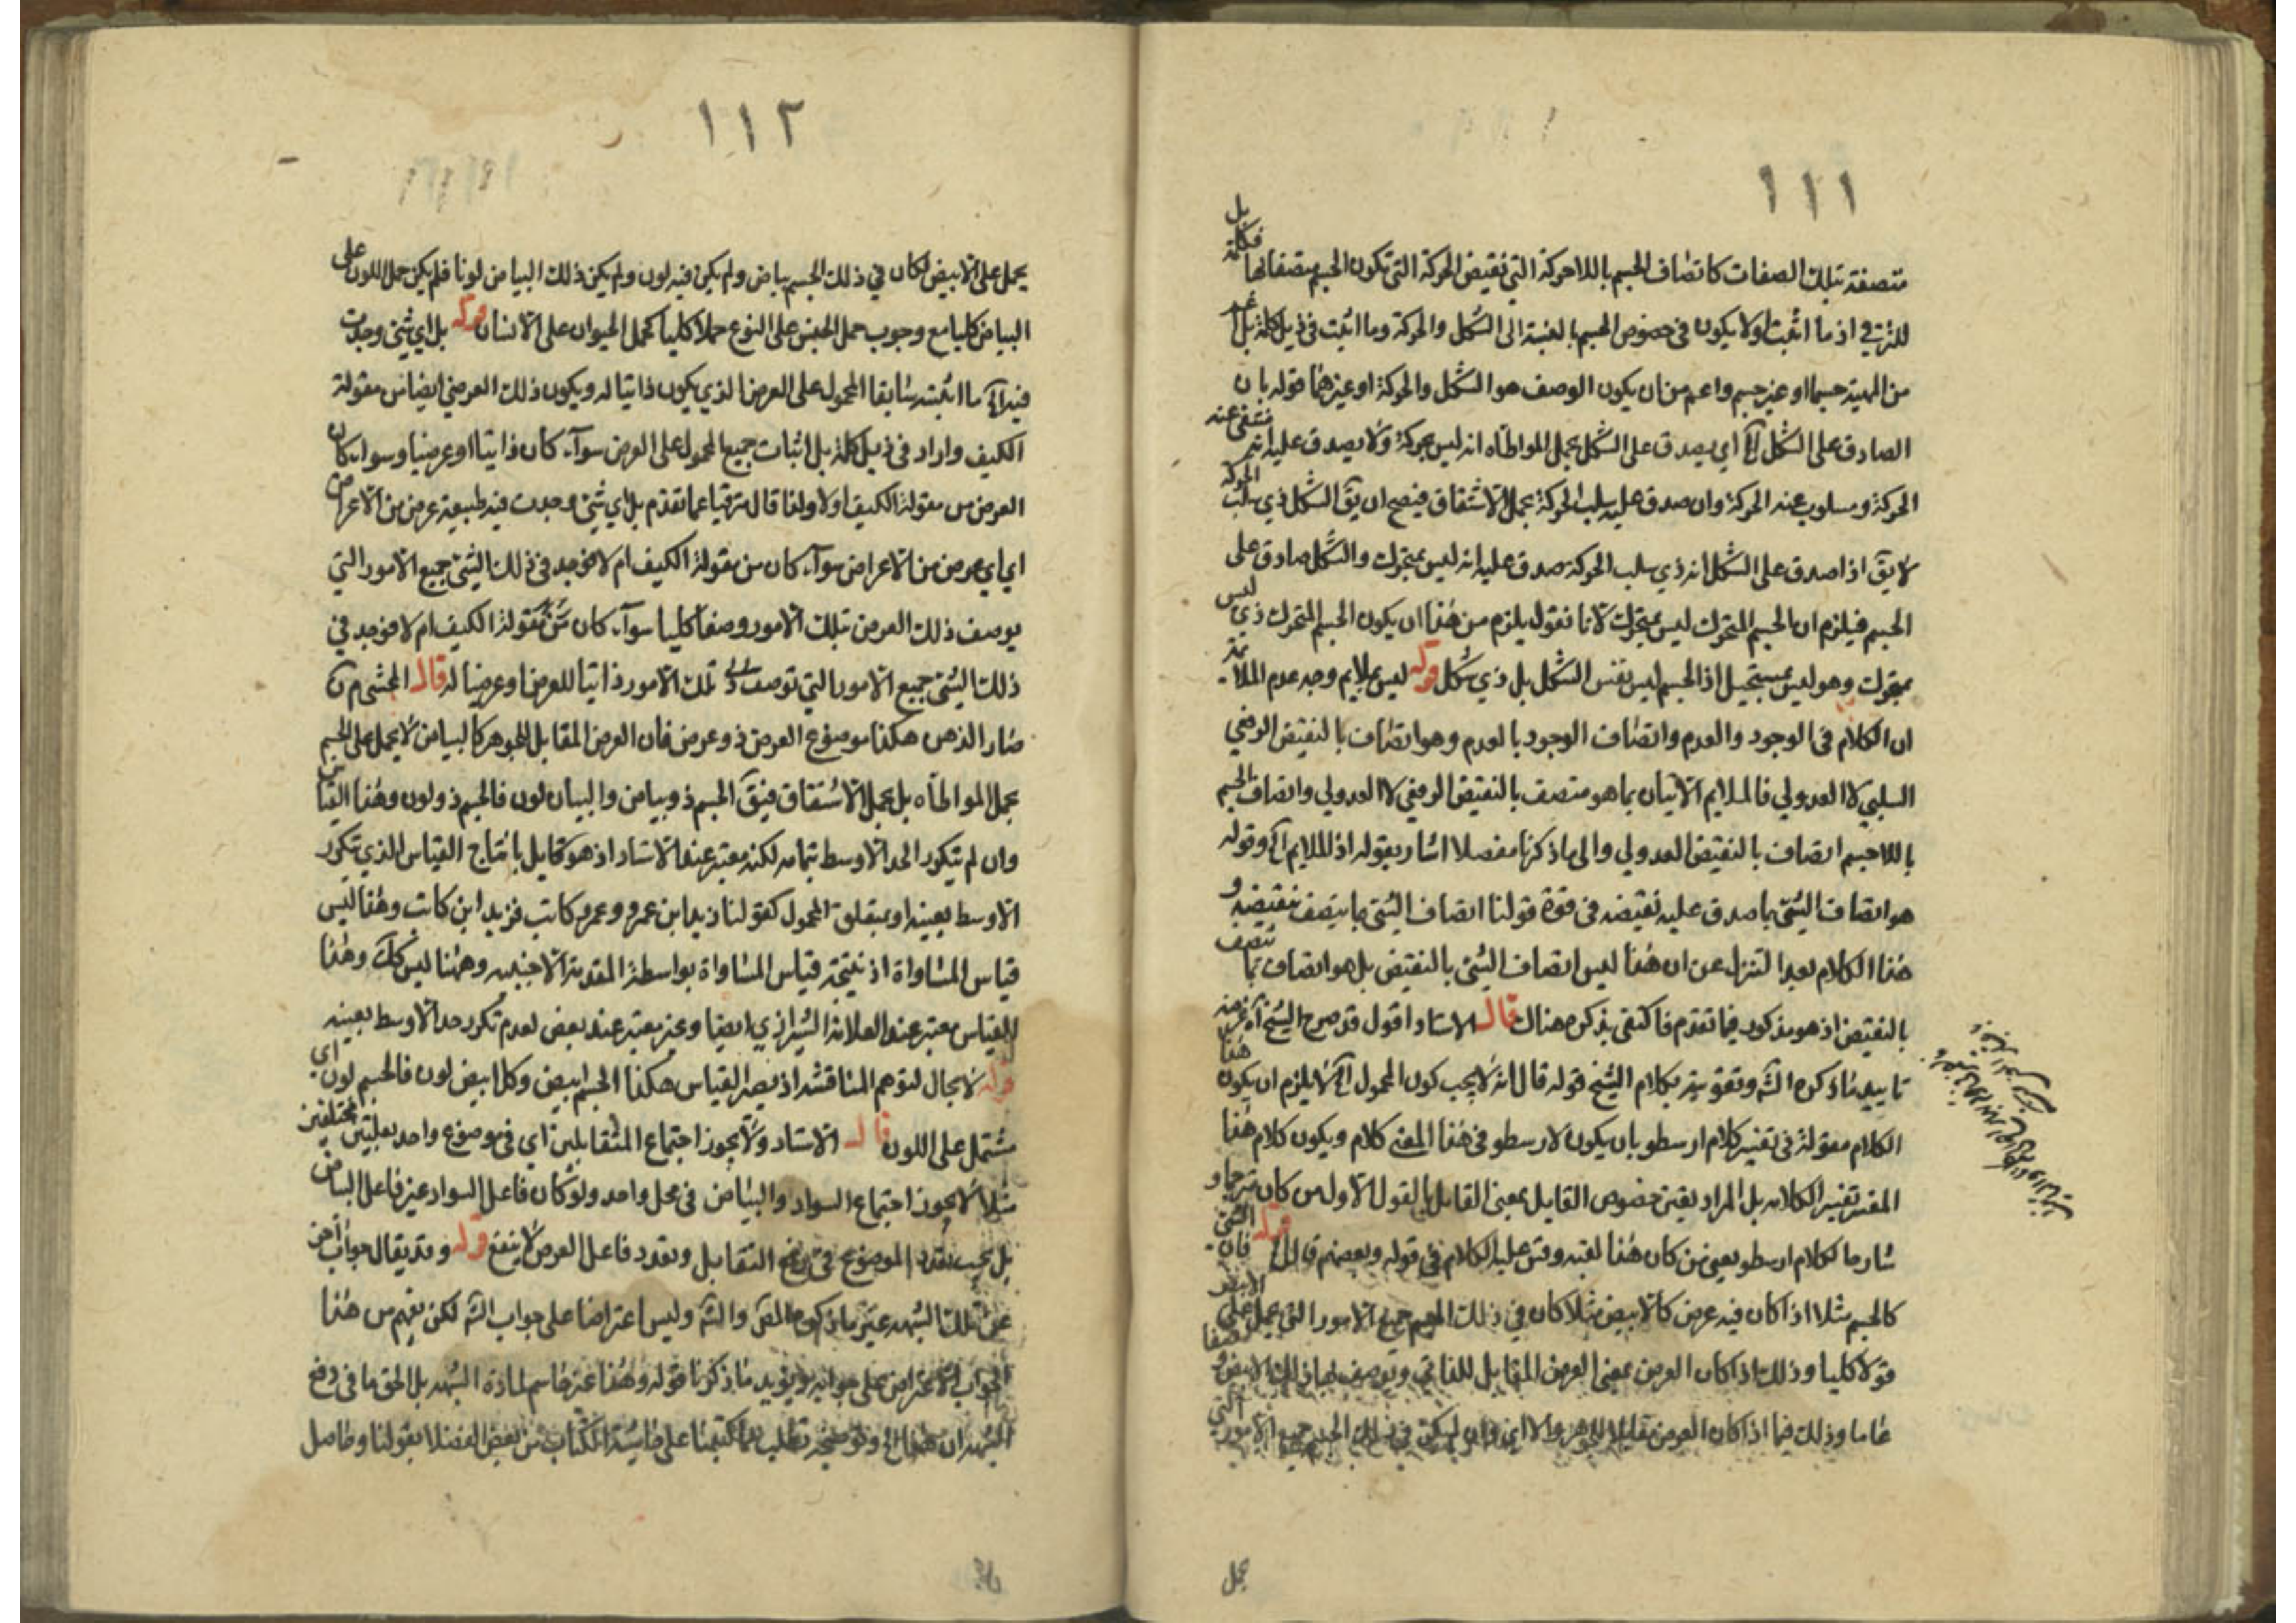 ١١١
متصفة بتلك الصفات كاتصاف الجسم باللاحركة التي نقيض الحركة التي تكون الجسم متصفا بها فكلمة بل
للترقي اذ ما اثبت اولا يكون في خصوص الجسم بالنسبة الى الشكل والحركة وما اثبت في ذيل كلمة بل اعم
من المهية جسما او غير جسم واعم من ان يكون الوصف هو الشكل والحركة او غيرهما قوله بان
الصادق على الشكل آه اي يصدق على الشكل بحمل المواطاه انه ليس بحركة ولا يصدق عليه انه منتفى عنه
الحركة ومسلوب عنه الحركة وان صدق عليه سلب الحركة بحمل الاشتقاق فيصح ان يق الشكل ذي سلب الحركة
لا يق اذا صدق على الشكل انه ذي سلب الحركة صدق عليه انه ليس بمتحرك والشكل صادق على
الجسم فيلزم ان الجسم المتحرك ليس بمتحرك لانا نقول يلزم من هذا ان يكون الجسم المتحرك ذي ليس
بمتحرك وهو ليس بمستحيل اذ الجسم ليس نفس الشكل بل ذي شكل قوله ليس بملايم وجه عدم الملا
ان الكلام في الوجود والعدم واتصاف الوجود بالعدم وهو اتصاف بالنقيض الرفعي
السلبي لا العدولي فالملايم الاتيان بما هو متصف بالنقيض الرفعي لا العدولي واتصاف الجسم
باللاجسم اتصاف بالنقيض العدولي والى ما ذكرنا مفصلا اشار بقوله اذ الملايم آه وقوله
هو اتصاف الشئ بما صدق عليه نقيضه في قوة قولنا اتصاف الشئ بما يتصف بنقيضه و
هذا الكلام بعد التنزل عن ان هذا ليس اتصاف الشئ بالنقيض بل هو اتصاف بما يتصف
بالنقيض اذ هو مذكور فيما تقدم فاكتفى بذكره هناك قال الاستاد اقول قد صرح الشيخ آه غرضه
تاييد ما ذكره الش وتقويته بكلام الشيخ قوله قال انه لا يجب كون المحمول آه لا يلزم ان يكون هذا
الكلام مقولة في تفسير كلام ارسطو بان يكون لارسطو في هذا المعنى كلام ويكون كلام هذا
المفسر تفسيرا لكلامه بل المراد يقين خصوص القايل بمعنى القايل بالقول الاول من كان مترجما و
شارحا لكلام ارسطو يعني من كان هذا لقبه وقس عليه الكلام في قوله وبعضهم قال قوله فان الشئ
كالجسم مثلا اذا كان فيه عرض كالابيض مثلا كان في ذلك الجسم جميع الامور التي يحمل على الابيض
قولا كليا وذلك اذا كان العرض بمعنى العرض المقابل للذاتي وتوصف بها ذلك الابيض وصفا
عاما وذلك فيما اذا كان العرض مقابلا للجوهر والا اي وان لم يكن في ذلك الجسم جميع الامور التي
يحمل
١١٢
يحمل على الابيض لكان في ذلك الجسم بياض ولم يكن فيه لون ولم يكن ذلك البياض لونا فلم يكن حمل اللون على
البياض كليا مع وجوب حمل الجنس على النوع حملا كليا كحمل الحيوان على الانسان قوله بل اي شئ وجدت
فيه آه ما اثبته سابقا المحمول على العرض الذي يكون ذاتيا له ويكون ذلك العرضي ايضا من مقولة
الكيف واراد في ذيل كلمة بل اثبات جميع المحمول على العرض سوآء كان ذاتيا او عرضيا وسواء كان
العرض من مقولة الكيف اولا ولذا قال مترقيا عما تقدم بل اي شئ وجدت فيه طبيعة عرض من الاعراض
اي اي عرض من الاعراض سوآء كان من مقولة الكيف ام لا فوجد في ذلك الشئ جميع الامور التي
يوصف ذلك العرض بتلك الامور وصفا كليا سوآء كان من مقولة الكيف ام لا فوجد في
ذلك الشئ جميع الامور التي توصف تلك الامور ذاتيا للعرض او عرضيا له قال المحشي م ن
صار الذهن هكذا موضوع العرض ذو عرض فان العرض المقابل للجوهر كالبياض لا يحمل على الجسم
بحمل المواطاه بل بحمل الاشتقاق فيق الجسم ذو بياض والبياض لون فالجسم ذو لون وهذا القياس
وان لم يتكرر الحد الاوسط بتمامه لكنه معتبر عند الاستاد اذ هو قايل بانتاج القياس الذي تكرر
الاوسط بعينه او بمتعلق المحمول كقولنا زيد ابن عمرو وعمرو كاتب فزيد ابن كاتب وهذا ليس
قياس المساواة اذ نتيجة قياس المساواة بواسطة المقدمة الاجنبيه وههنا ليس كك وهذا
القياس معتبر عند العلامة الشيرازي ايضا وغير معتبر عند بعض لعدم تكرر حد الاوسط بعينه
قوله لا مجال لتوهم المناقشة اذ يصير القياس هكذا الجسم ابيض وكل ابيض لون فالجسم لون اي
مشتمل على اللون قال الاستاد ولا يجوز اجتماع المتقابلين اي في موضوع واحد بعلتين مختلفين
مثلا لا يجوز اجتماع السواد والبياض في محل واحد ولو كان فاعل السواد غير فاعل البياض
بل يجب تعدد الموضوع في رفع التقابل وتعدد فاعل العرض لا ينفع قوله وقد يقال جواب اخر
عن تلك الشبهه غير ما ذكره المص والش وليس اعتراضا على جواب الش لكن يفهم من هذا
الجواب الاعتراض على جوابه ويؤيد ما ذكرنا قوله وهذا غير حاسم لمادة الشبهه بل الحق ما في دفع
الشبهه ان يقال وتوضيحه يطلب مما كتبنا على حاشية الكتاب من بعض الفضلا بقولنا وحاصل